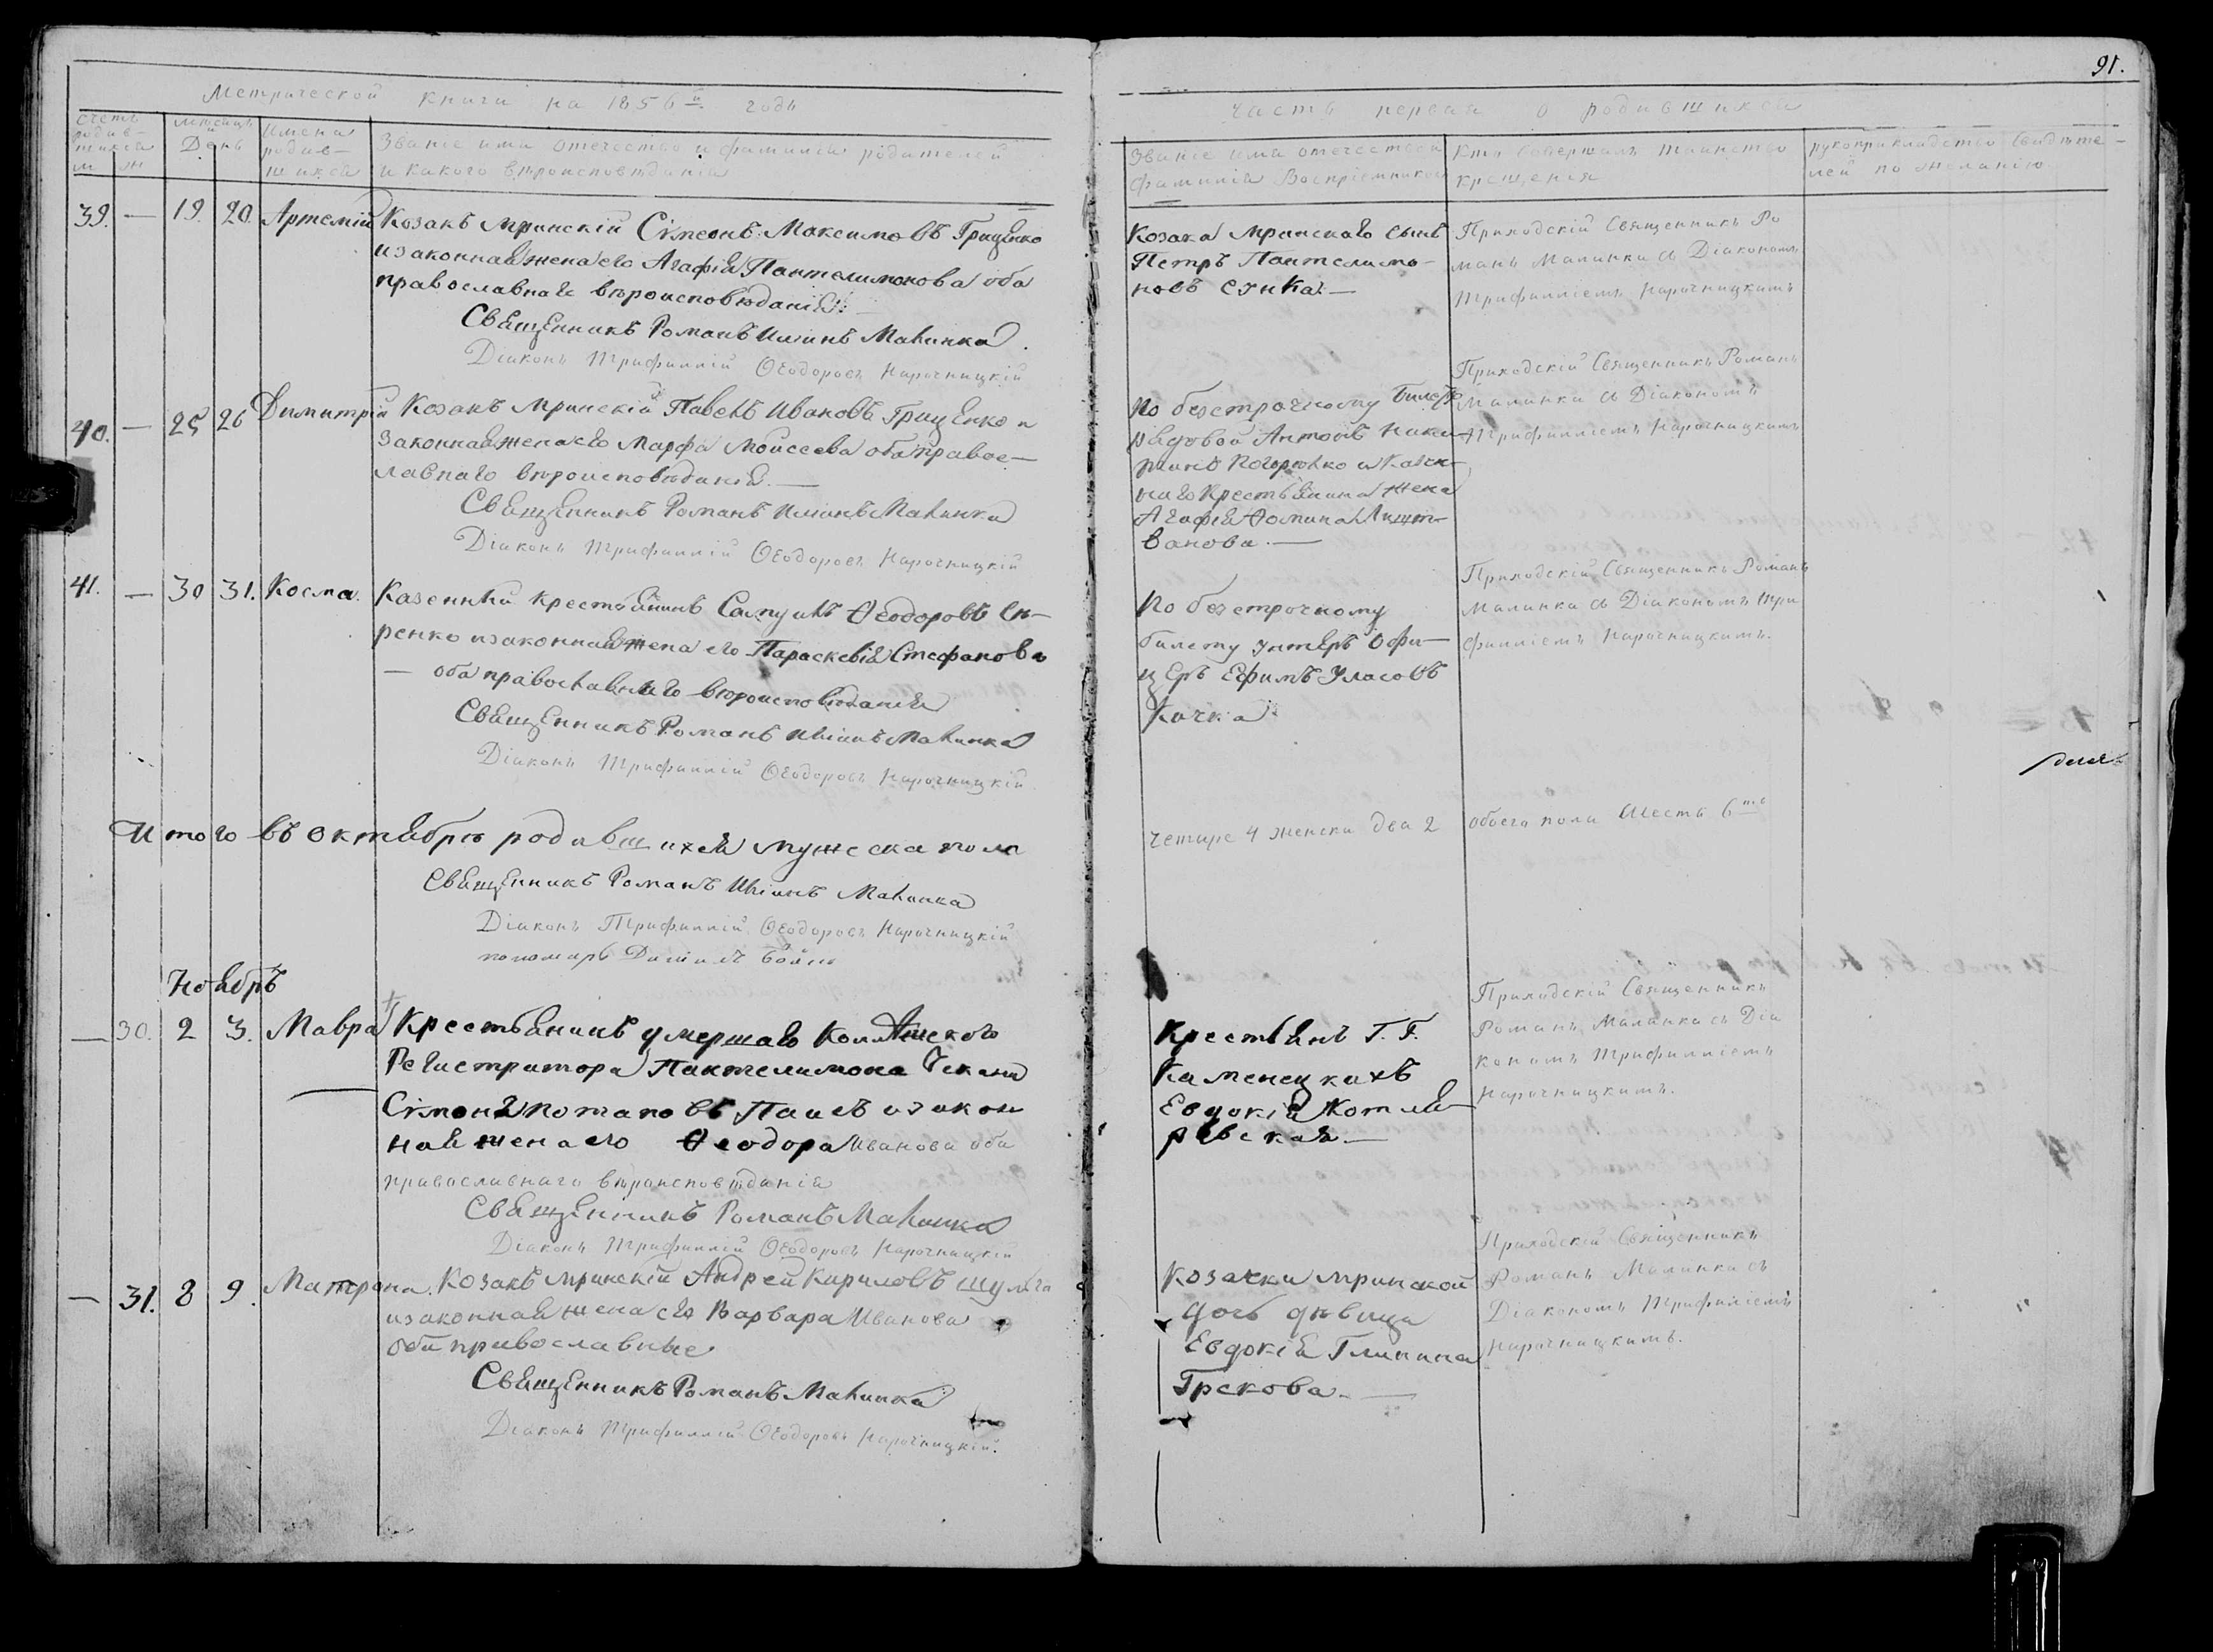 91.
Метрической книги на 1856й годъ
Часть первая о родившихся
Счетъ родив-шихся
м ж
Мѣсяцъ и День
Имена родив-шихся
Званіе имя отечество и фамилія родителей
и какого вѣроисповѣданія
Званіе имя отечество и
фамилія Воспріемниковъ
Кто Совершалъ таинство
крещенія
рукоприкладство свидѣте-
лей по желанію
39. — 19. 20. Артемій
Козакъ мринскій Сімеонъ Максимовъ Гриценко
и законная жена его Агафія Пантелимонова оба
православнаго вѣроисповѣданія.
Священникъ Романъ Иліинъ Малинка.
Діаконъ Трифиллій Ѳеодоровъ Нарочницкій
Козака мринскаго сынъ
Петръ Пантелимо-
новъ
Приходскій Священникъ Ро
манъ Малинка съ Діакономъ
Трифилліемъ Нарочницкимъ
40. — 25 26 Димитрій
Козакъ мринскій Павелъ Ивановъ Гриценко и
законная жена его Марфа Моисеева оба правос-
лавнаго вѣроисповѣданія. —
Священникъ Романъ Иліинъ Малинка
Діаконъ Трифиллій Ѳеодоровъ Нарочницкій
По безсрочному
рядовой Антонъ
и Казен-
наго Крестьянина жена
Агафія Ѳомина
ванова. —
Приходскій Священникъ Романъ
Малинка съ Діакономъ
Трифилліемъ Нарочницкимъ
41. — 30 31. Косма.
Казенный крестьянинъ Самуилъ Ѳеодоровъ
ренко и законная жена его Параскевія Стефанова
— оба православнаго вѣроисповѣданія
Священникъ Романъ Иліинъ Малинка
Діаконъ Трифиллій Ѳеодоровъ Нарочницкій
По безсрочному
билету унтеръ офи-
церъ Ефимъ Уласовъ
Качка
Приходскій Священникъ Романъ
Малинка съ Діакономъ Три
филліемъ Нарочницкимъ.
Итого въ октябрѣ родившихся мужеска пола
четыре 4 женска два 2 обоего пола Шесть 6
Священникъ Романъ Иліинъ Малинка
Діаконъ Трифиллій Ѳеодоровъ Нарочницкій
пономарь
Ноябрь
— 30. 2 3. Мавра
Крестьянинъ умершаго Коллежскаго
Регистратора Пантелимона
Сімонъ Потаповъ и закон
ная жена его Ѳеодора Иванова оба
православнаго вѣроисповѣданія
Священникъ Романъ Малинка
Діаконъ Трифиллій Ѳеодоровъ Нарочницкій
Крестьянъ Г. Г.
Каменецкихъ
Евдокія Котля
ревская. —
Приходскій Священникъ
Романъ Малинка съ Діа
кономъ Трифилліемъ
Нарочницкимъ.
— 31. 8 9. Матрона.
Козакъ мринскій Андрей Кириловъ Шульга
и законная жена его Варвара Иванова
оба православные
Священникъ Романъ Малинка
Діаконъ Трифиллій Ѳеодоровъ Нарочницкій.
Козачки мринской
дочь дѣвица
Евдокія
Грекова. —
Приходскій Священникъ
Романъ Малинка съ
Діакономъ Трифиліемъ
Нарочницкимъ.